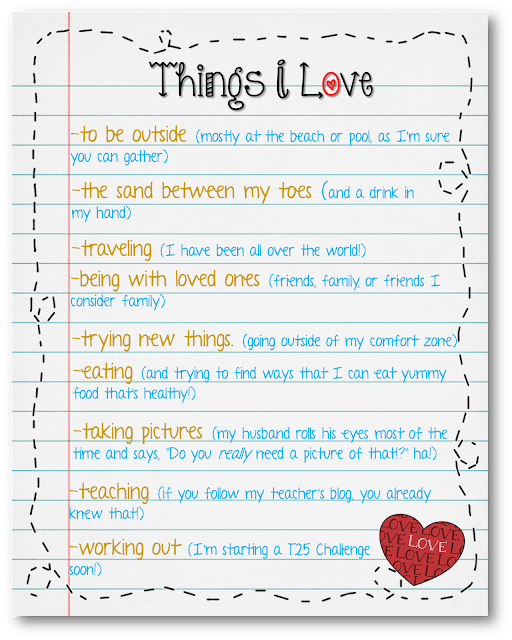 Things I Love
-to be outside (mostly at the beach or pool, as I'm sure
you can gather)
-the sand between my toes (and a drink in
my hand)
-traveling (I have been all over the world!)
-being with loved ones (friends, family, or friends I
consider family)
-trying new things. (going outside of my comfort zone)
-eating (and trying to find ways that I can eat yummy
food that's healthy!)
-taking pictures (my husband rolls his eyes most of the
time and says, "Do you really need a picture of that!?" ha!)
-teaching (if you follow my teacher's blog, you already
knew that!)
-working out (I'm starting a T25 Challenge
soon!)
OVE LOVE LO
OVE LOVE LO
E LOVE LOVE
LOVE